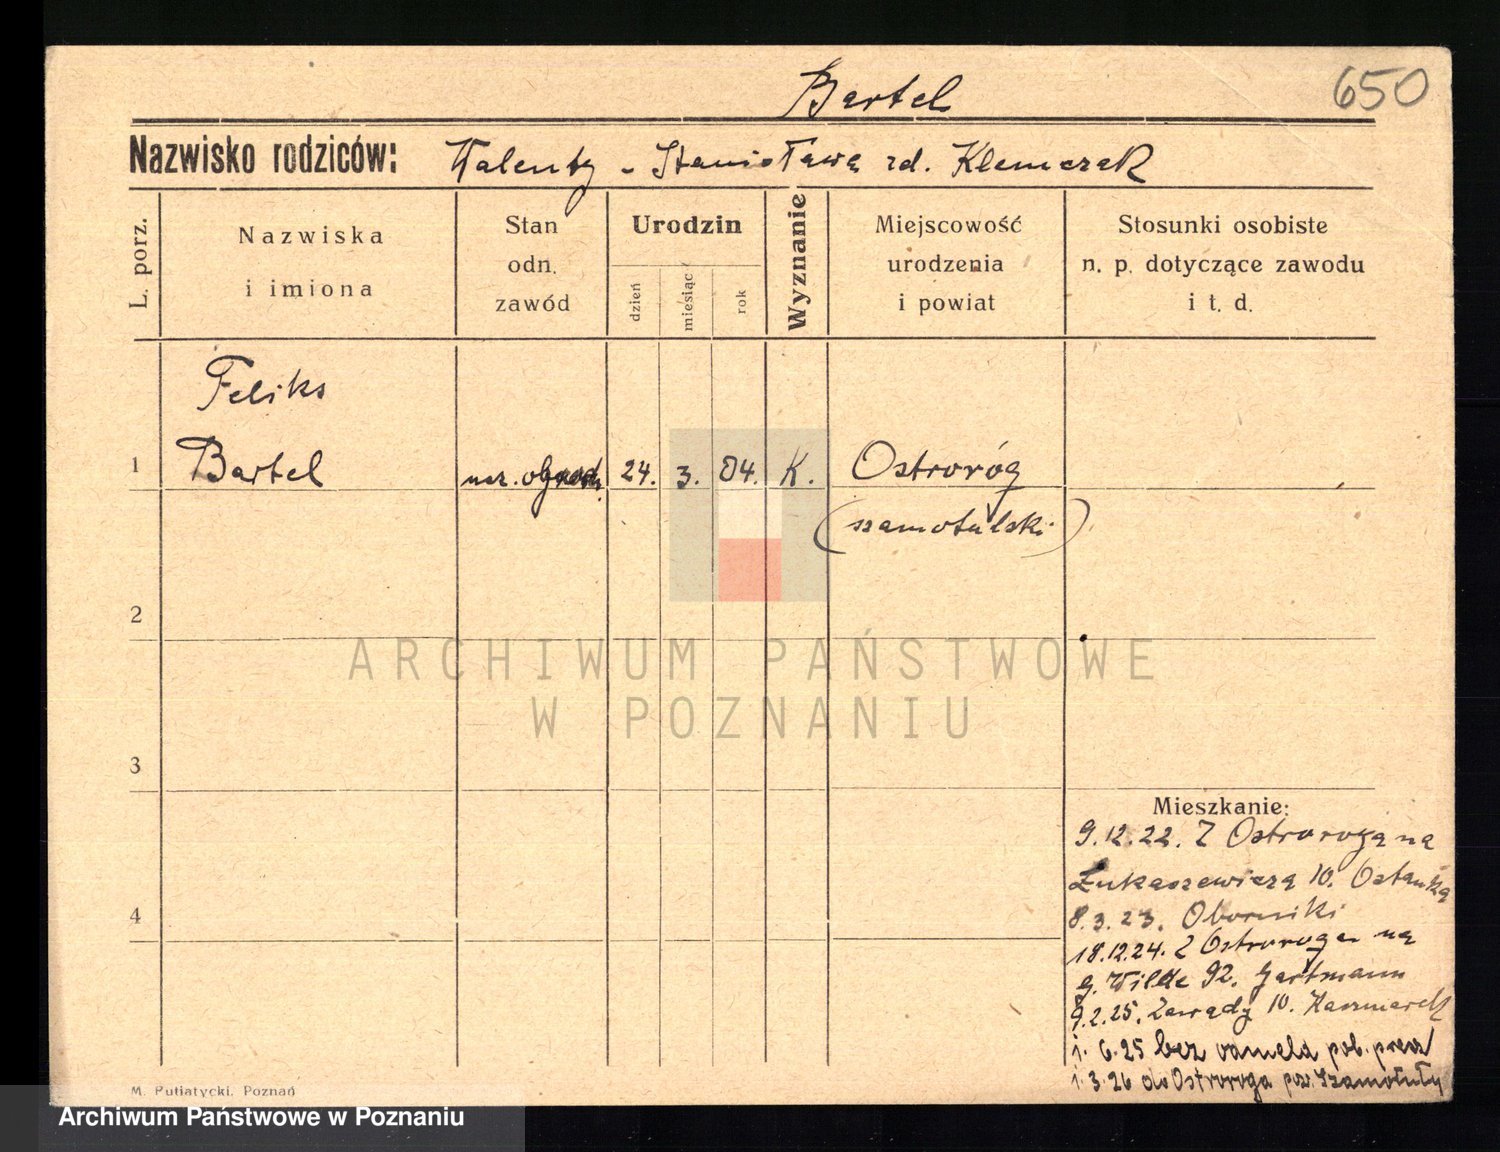 Bartel
650
Nazwisko rodziców: Walenty - Stanisława zd. Klemczak
L. porz.
Nazwiska
i imiona
Stan
odn.
zawód
Urodzin
dzień
miesiąc
rok
Wyznanie
Miejscowość
urodzenia
i powiat
Stosunki osobiste
n. p. dotyczące zawodu
i t. d.
Feliks
1 Bartel ucz. ogrod. 24. 3. 04. K. Ostroróg
(szamotulski)
2
3
4
Mieszkanie:
9.12.22. Z Ostroroga na
Łukaszewicza 10.
8.3.23. Oborniki
18.12.24. Z Ostroroga na
G. Wilde 92. Hartmann
9.2.25. Zawady 10. Kaczmarek
1. 6.25 bez pob.
1. 3.26 do Ostroroga pow. Szamotuły
M. Putiatycki, Poznań
ARCHIWUM PAŃSTWOWE
W POZNANIU
Archiwum Państwowe w Poznaniu